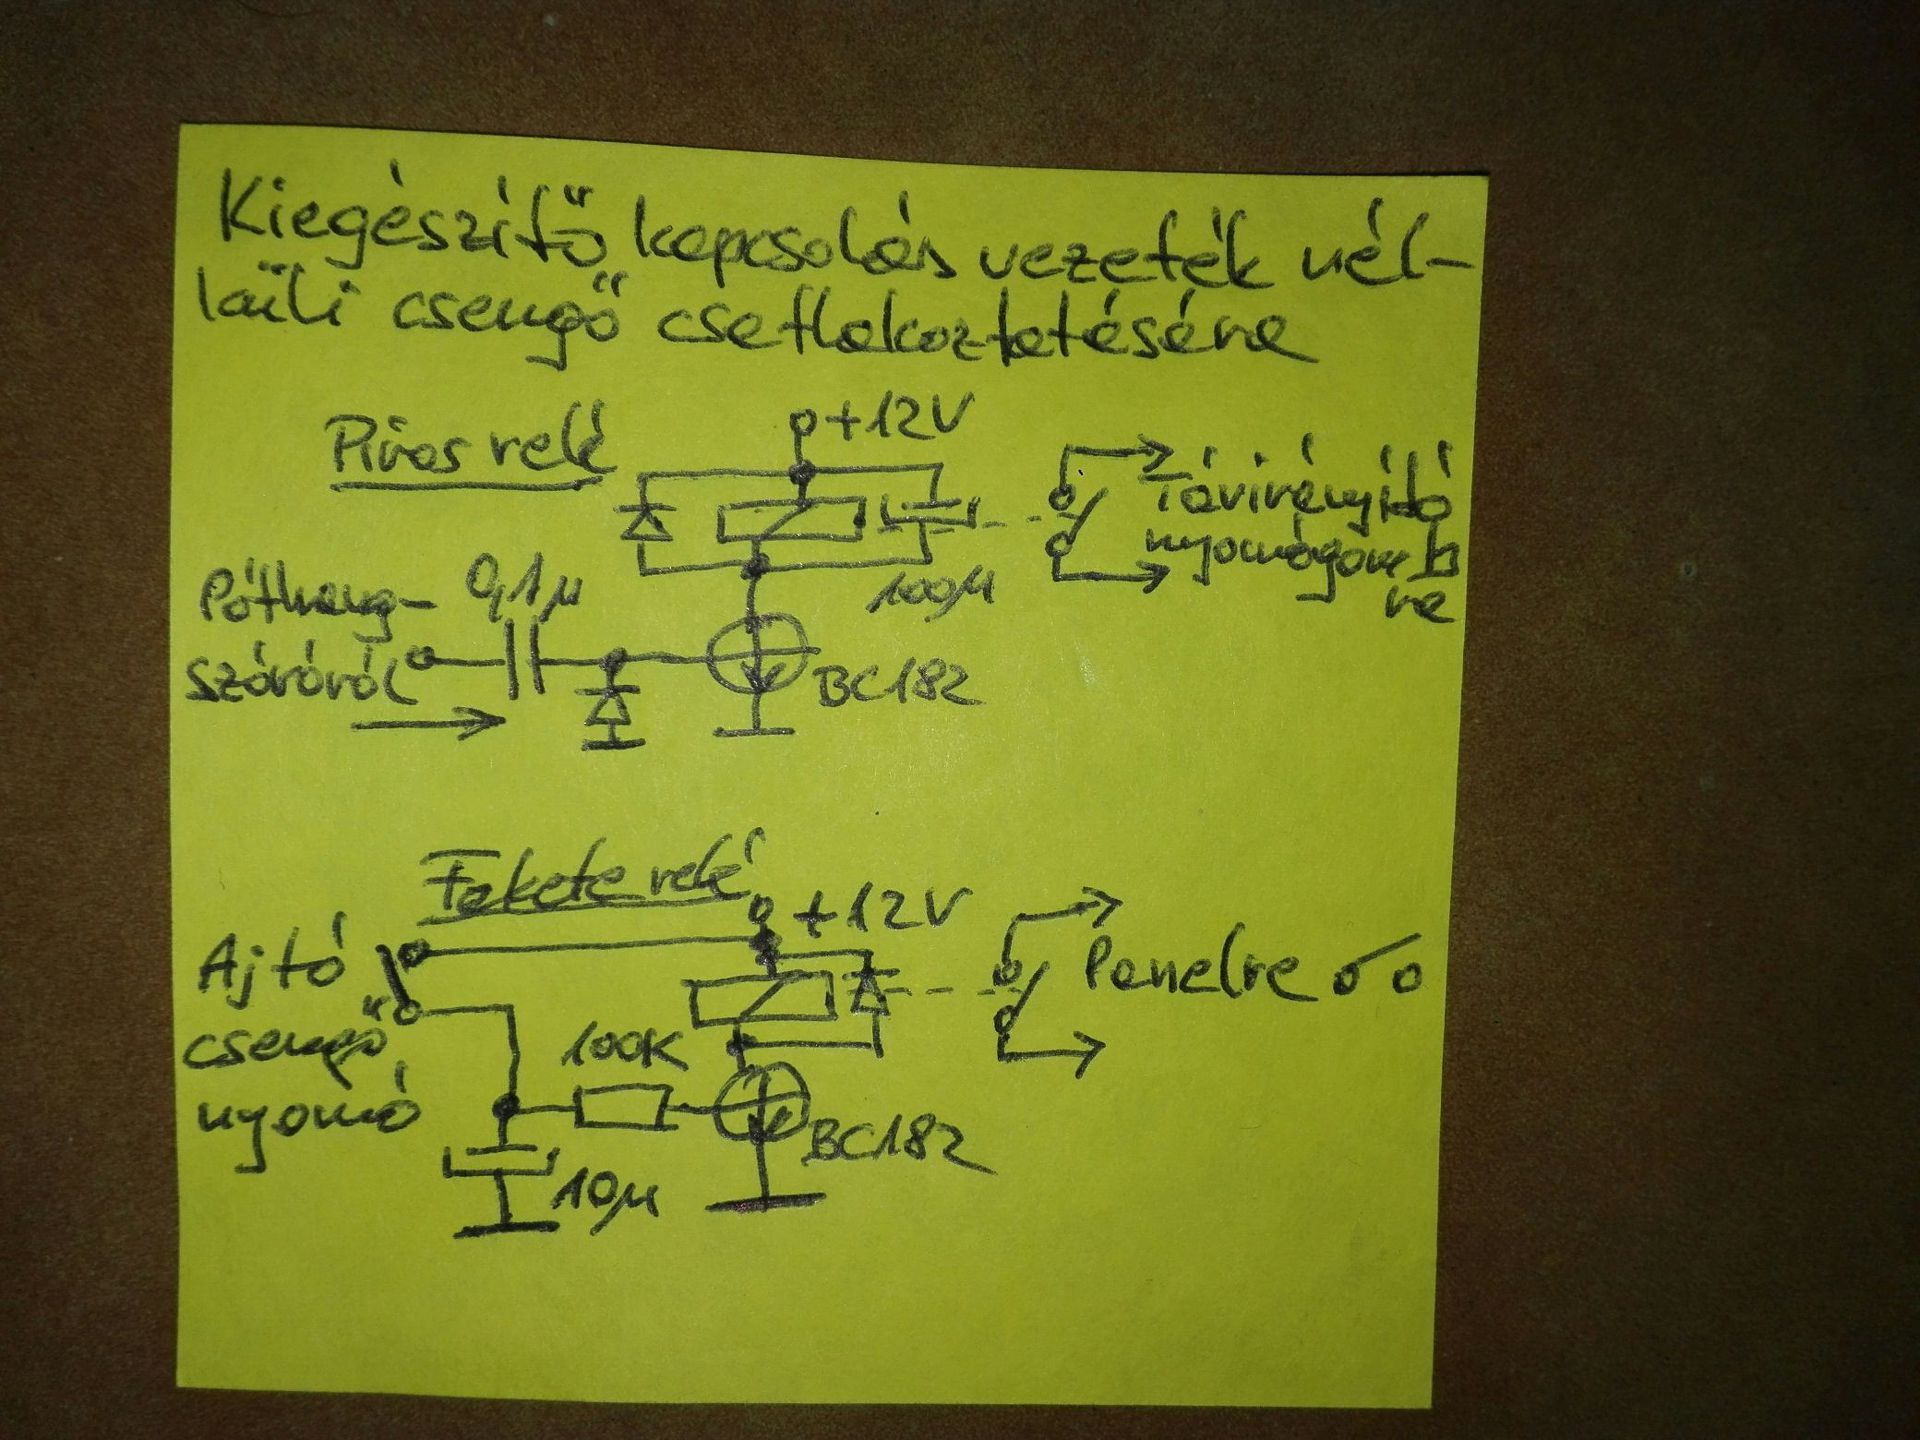 Kiegészítő kapcsolás vezeték nél-
küli csengő csatlakoztatására
Piros relé
+12V
Távirányító
nyomógomb
ra
100µ
Póthang-
szóróról
0,1µ
BC182
Fekete relé
+12V
Ajtó
csengő
nyomó
Panelre
100K
BC182
10µ